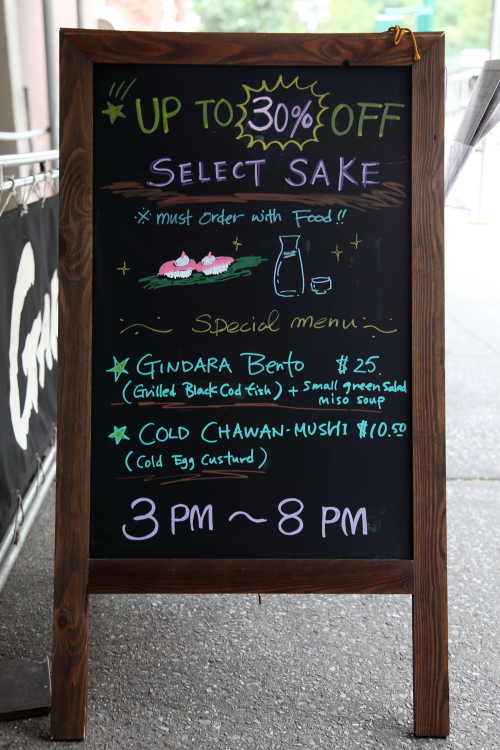 UP TO 30% OFF
SELECT SAKE
※ must order with Food!!
~ Special menu ~
GINDARA Bento $25.
(Grilled Black Cod fish) + Small green Salad
miso soup
COLD CHAWAN-MUSHI $10.50
(Cold Egg Custurd)
3 PM ~ 8 PM